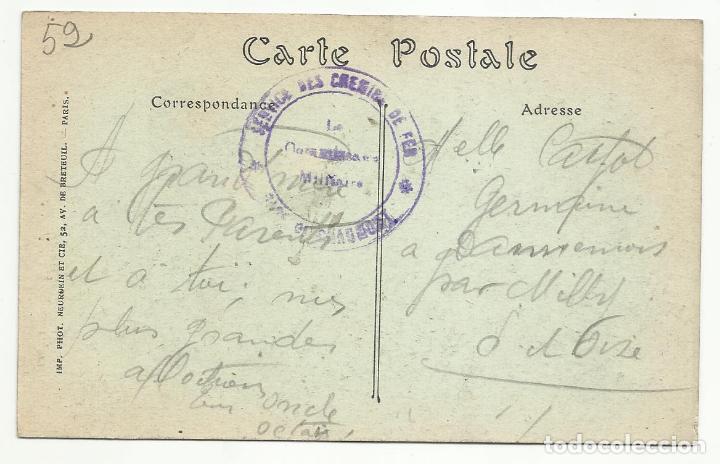 59
Carte Postale
Correspondance
Adresse
SERVICE DES CHEMINS DE FER
Le
Commissaire
Militaire
GARE DE CHAUMONT
IMP. PHOT. NEURDEIN ET CIE, 52, AV. DE BRETEUIL. — PARIS.
A
à tes Parents
et à toi, mes
plus grandes
ton oncle
Octave
Melle
Germaine
à Dannemois
par Milly
S et Oise
todocoleccion.net